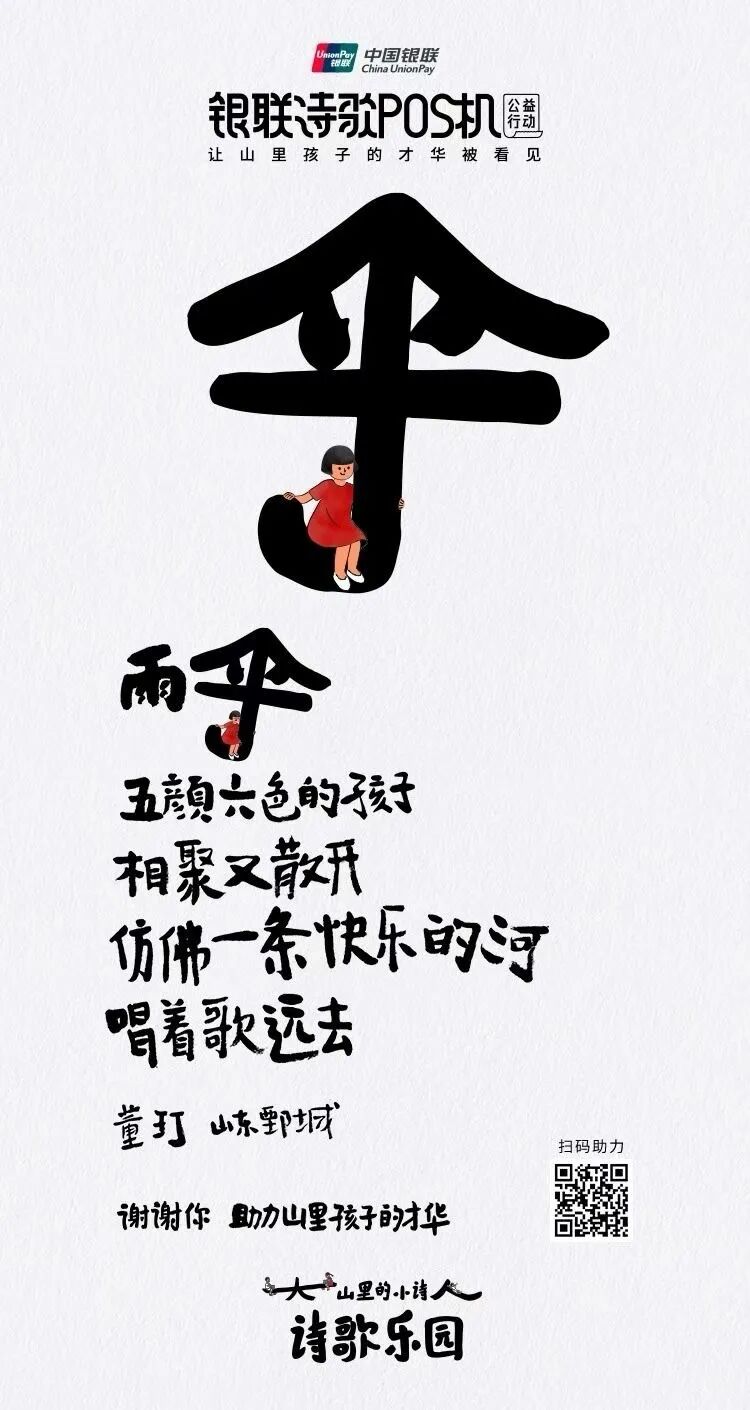 UnionPay 银联 中国银联
China UnionPay
银联诗歌POS机 公益行动
让山里孩子的才华被看见
伞
雨伞
五颜六色的孩子
相聚又散开
仿佛一条快乐的河
唱着歌远去
董玎 山东鄄城
扫码助力
谢谢你 助力山里孩子的才华
大山里的小诗人
诗歌乐园